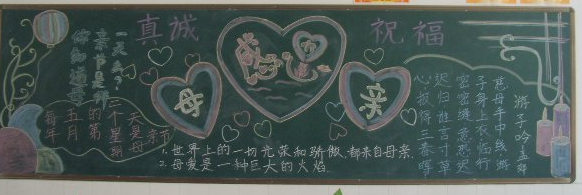 真诚
祝福
你知道母
亲节是哪
一天么?
母
亲
每年
五月
的第
二个星期
天是母
亲节
1.世界上的一切光荣和骄傲,都来自母亲.
2.母爱是一种巨大的火焰.
游子吟 孟郊
慈母手中线游
子身上衣临行
密密缝意恐迟
迟归谁言寸草
心报得三春晖